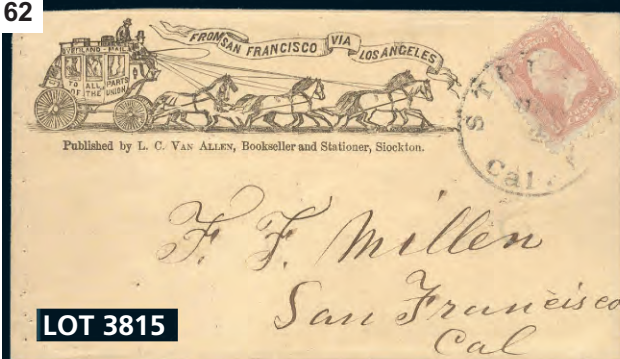 62
OVERLAND-MAIL
TO ALL PARTS
OF THE UNION
FROM SAN FRANCISCO VIA LOS ANGELES
Published by L. C. VAN ALLEN, Bookseller and Stationer, Siockton.
Cal.
F. F. Millen
San Francisco
Cal
LOT 3815